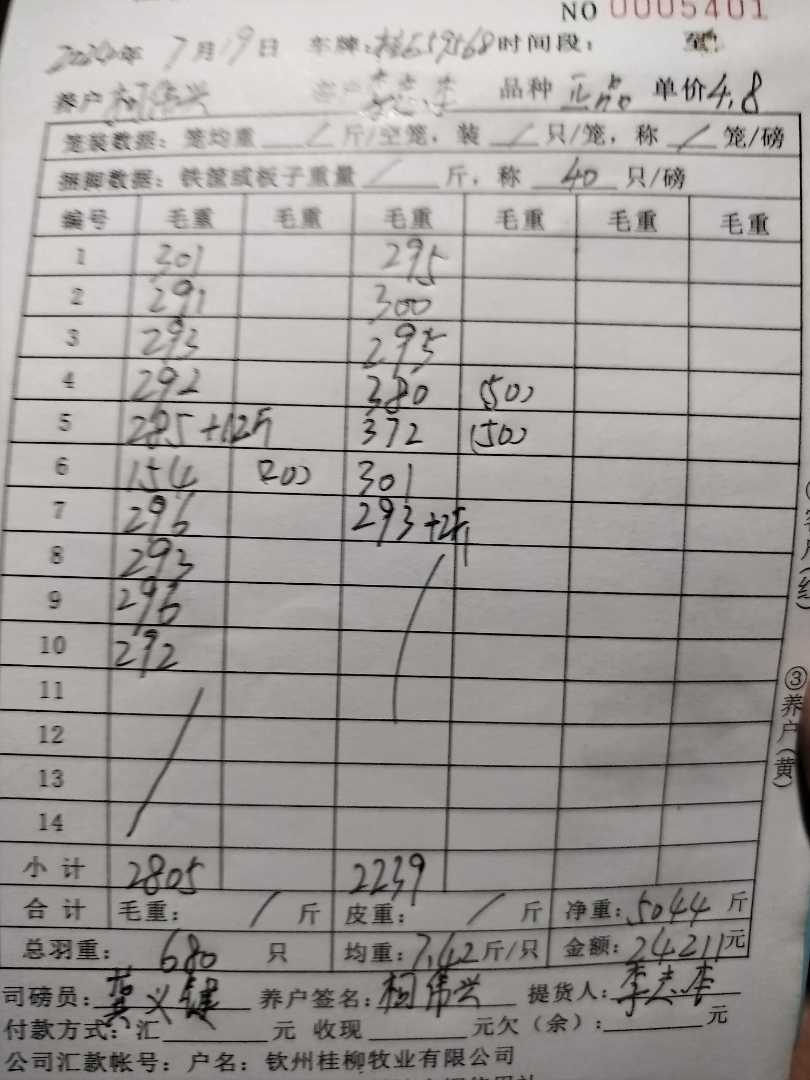 NO 0005401
2024年 7月19日 车牌:桂659568时间段: 至
养户 柯伟兴 客户 李志本 品种 正品 单价4.8
笼装数据: 笼均重 / 斤/空笼, 装 / 只/笼, 称 / 笼/磅
捆脚数据: 铁筐或板子重量 / 斤, 称 40 只/磅
编号 毛重 毛重 毛重 毛重 毛重 毛重
1 301 295
2 291 300
3 293 295
4 292 380 (50)
5 285+12斤 372 (50)
6 154 (20) 301
7 296 293+2斤
8 293
9 296
10 292
11
12
13
14
小计 2805 2239
合计 毛重: / 斤 皮重: / 斤 净重:5044 斤
总羽重: 680 只 均重:7.42斤/只 金额:24211元
司磅员: 黄义键 养户签名:柯伟兴 提货人:李志本
付款方式:汇 元 收现 元欠(余): 元
公司汇款帐号: 户名: 钦州桂柳牧业有限公司
③养户(黄)